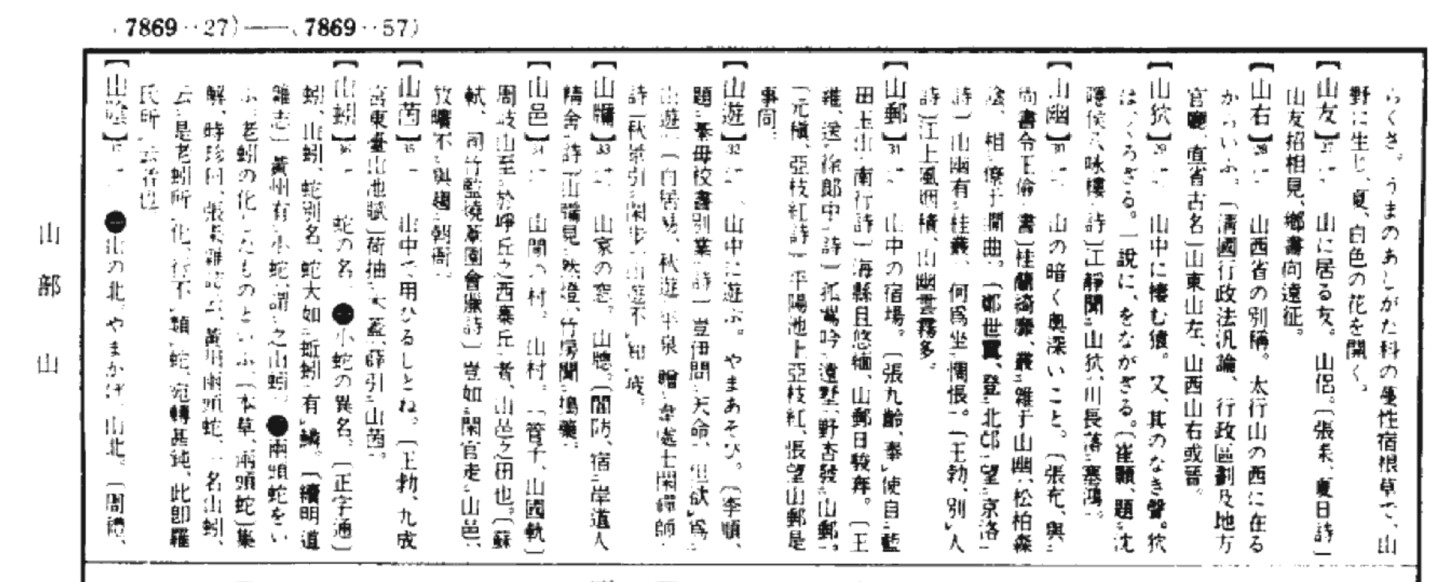 7869‥27)——(7869‥57)
らくさ。うまのあしがた科の多性宿根草で、山
野に生じ、夏、白色の花を開く。
【山友】27 山に居る友。山侶。〔張耒、夏日詩〕
山友招相見、鄕書向遠征。
【山右】28 山西省の別稱。太行山の西に在る
からいふ。〔淸國行政法汎論、行政區劃及地方
官廳、直省古名〕山東山左、山西山右或晉。
【山狖】29 山中に棲む猿。又、其のなき聲。狖
は、くろざる。一說に、をながざる。〔崔顥、題沈
隱侯八咏樓詩〕江靜聞山狖、川長落塞鴻。
【山幽】30 山の暗く奧深いこと。〔張充、與
尙書令王儉書〕桂蘭綺靡、叢雜于山幽、松柏森
陰、相繚于澗曲。〔鄭世翼、登北邙望京洛
詩〕山幽有桂叢、何爲坐惆悵。〔王勃、別人
詩〕江上風烟積、山幽雲霧多。
【山郵】31 山中の宿場。〔張九齡、奉使自藍
田玉山南行詩〕海縣且悠緬、山郵日駿奔。〔王
維、送徐郎中詩〕孤鶯吟遠墅、野杏發山郵。
〔元稹、亞枝紅詩〕平陽池上亞枝紅、悵望山郵是
事同。
【山遊】32 山中に遊ぶ。やまあそび。〔李頎、
題綦毋校書別業詩〕豈伊問天命、但欲爲
山遊。〔白居易、秋遊平泉贈韋處士閑禪師
詩〕秋景引閑步、山遊不知疲。
【山牖】33 山家の窓。山牕。〔閻防、宿岸道人
精舍詩〕山牖見然燈、竹房聞搗藥。
【山邑】34 山閒の村。山村。〔管子、山國軌〕
周岐山至於崢丘之西塞丘者、山邑之田也。〔蘇
軾、司竹監燒葦園會獵詩〕豈如閑官走山邑、
放曠不與趨朝衙。
【山茵】35 山中で用ひるしとね。〔王勃、九成
宮東臺山池賦〕荷抽水蓋、薜引山茵。
【山蚓】36 蛇の名。●小蛇の異名。〔正字通〕
蚓、山蚓、蛇別名、蛇大如蚯蚓、有鱗。〔續明道
雜志〕黃州有小蛇、謂之山蚓。●兩頭蛇をい
ふ。老蚓の化したものといふ。〔本草、兩頭蛇〕集
解、時珍曰、張耒雜志云、黃州兩頭蛇、一名山蚓、
云是老蚓所化、行不類蛇、宛轉甚鈍、此卽羅
氏所云者也。
【山陰】37 ●山の北。やまかげ。山北。〔周禮、
山部 山